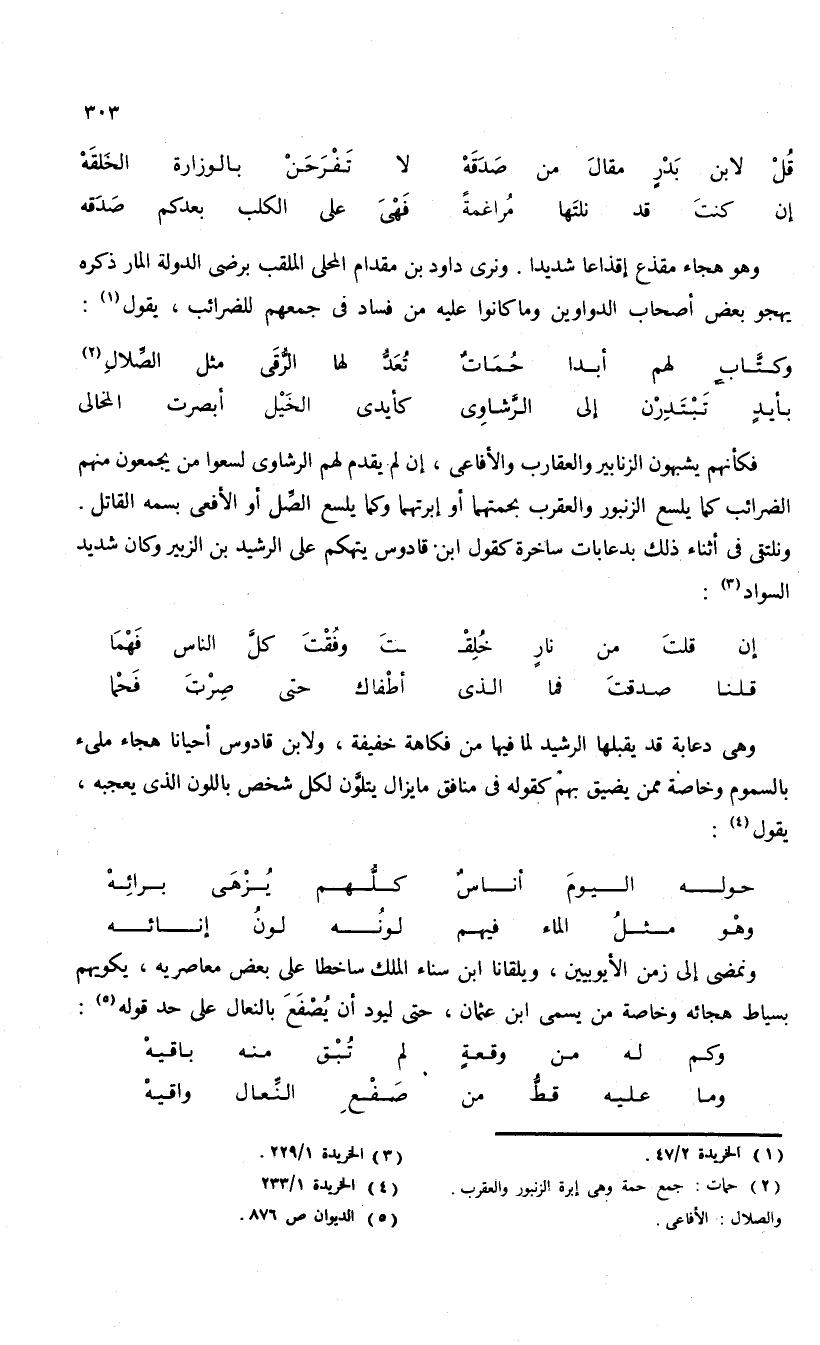 ٣٠٣
قُلْ لابن بَدْرٍ مقالَ من صَدَقَهْ لا تَفْرَحَنْ بالوزارة الخَلقَهْ
إن كنتَ قد نلتَها مُراغمةً فَهْىَ على الكلب بعدكم صَدَقه
وهو هجاء مقذع إقذاعا شديدا . ونرى داود بن مقدام المحلى الملقب برضى الدولة المار ذكره
يهجو بعض أصحاب الدواوين وماكانوا عليه من فساد فى جمعهم للضرائب ، يقول(١) :
وكتَّابٍ لهم أبدا حُمَاتٌ تُعَدُّ لها الرُّقَى مثل الصِّلالِ(٢)
بأيدٍ تَبْتَدِرْن إلى الرَّشاوِى كأيدى الخَيْل أبصرت المخالى
فكأنهم يشبهون الزنابير والعقارب والأفاعى ، إن لم يقدم لهم الرشاوى لسعوا من يجمعون منهم
الضرائب كما يلسع الزنبور والعقرب بحمتهما أو إبرتهما وكما يلسع الصِّل أو الأفعى بسمه القاتل .
ونلتقى فى أثناء ذلك بدعابات ساخرة كقول ابن قادوس يتهكم على الرشيد بن الزبير وكان شديد
السواد(٣) :
إن قلتَ من نارٍ خُلِقْـ ـتَ وفُقْتَ كلَّ الناس فَهْمَا
قلنا صدقتَ فما الذى أطْفاك حتى صِرْتَ فَحْما
وهى دعابة قد يقبلها الرشيد لما فيها من فكاهة خفيفة ، ولابن قادوس أحيانا هجاء ملىء
بالسموم وخاصة ممن يضيق بهمْ كقوله فى منافق مايزال يتلوَّن لكل شخص باللون الذى يعجبه ،
يقول(٤) :
حوله اليومَ أناسٌ كلُّهم يُزْهَى برائِهْ
وهْو مثلُ الماء فيهم لونُه لونُ إنائه
ونمضى إلى زمن الأيوبيين ، ويلقانا ابن سناء الملك ساخطا على بعض معاصريه ، يكويهم
بسياط هجائه وخاصة من يسمى ابن عثمان ، حتى ليود أن يُصْفَعَ بالنعال على حد قوله(٥) :
وكم له من وقعةٍ لم تُبْق منه باقيهْ
وما عليه قطُّ من صَفْعِ النِّعال واقيهْ
(١) الخريدة ٤٧/٢ .
(٢) حمات : جمع حمة وهى إبرة الزنبور والعقرب .
والصلال : الأفاعى .
(٣) الخريدة ٢٢٩/١ .
(٤) الخريدة ٢٣٣/١
(٥) الديوان ص ٨٧٦ .